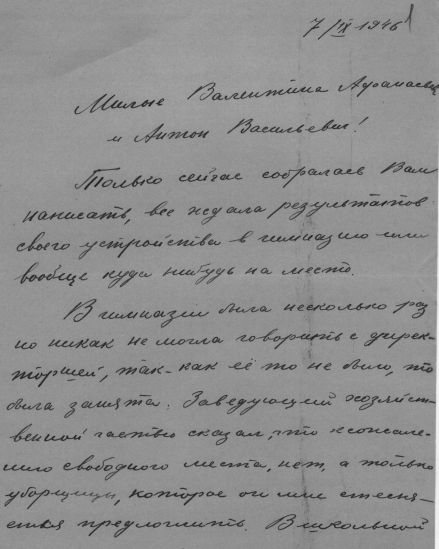 7/IX 1946
Милые Валентина Афанасьевна
и Антон Васильевич!
Только сейчас собралась Вам
написать, все ждала результатов
своего устройства в гимназию или
вообще куда нибудь на место.
В гимназии была несколько раз
но никак не могла говорить с дирек-
торшей, так-как её то не было, то
была занята. Заведующий хозяйст-
венной частью сказал, что к сожале-
нию свободного места, нет, а только
уборщицы, которое он мне стесня-
ется предложить. В школьной